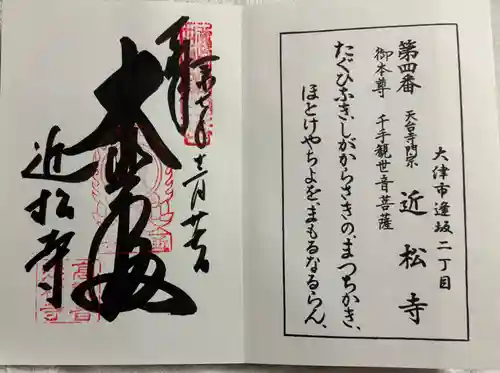 大津市逢坂二丁目
第四番 天台寺門宗 近松寺
御本尊 千手観世音菩薩
たぐひなき、しがからさきの、まつちかき、
ほとけやちよを、まもるなるらん、
奉拝
大悲殿
近松寺